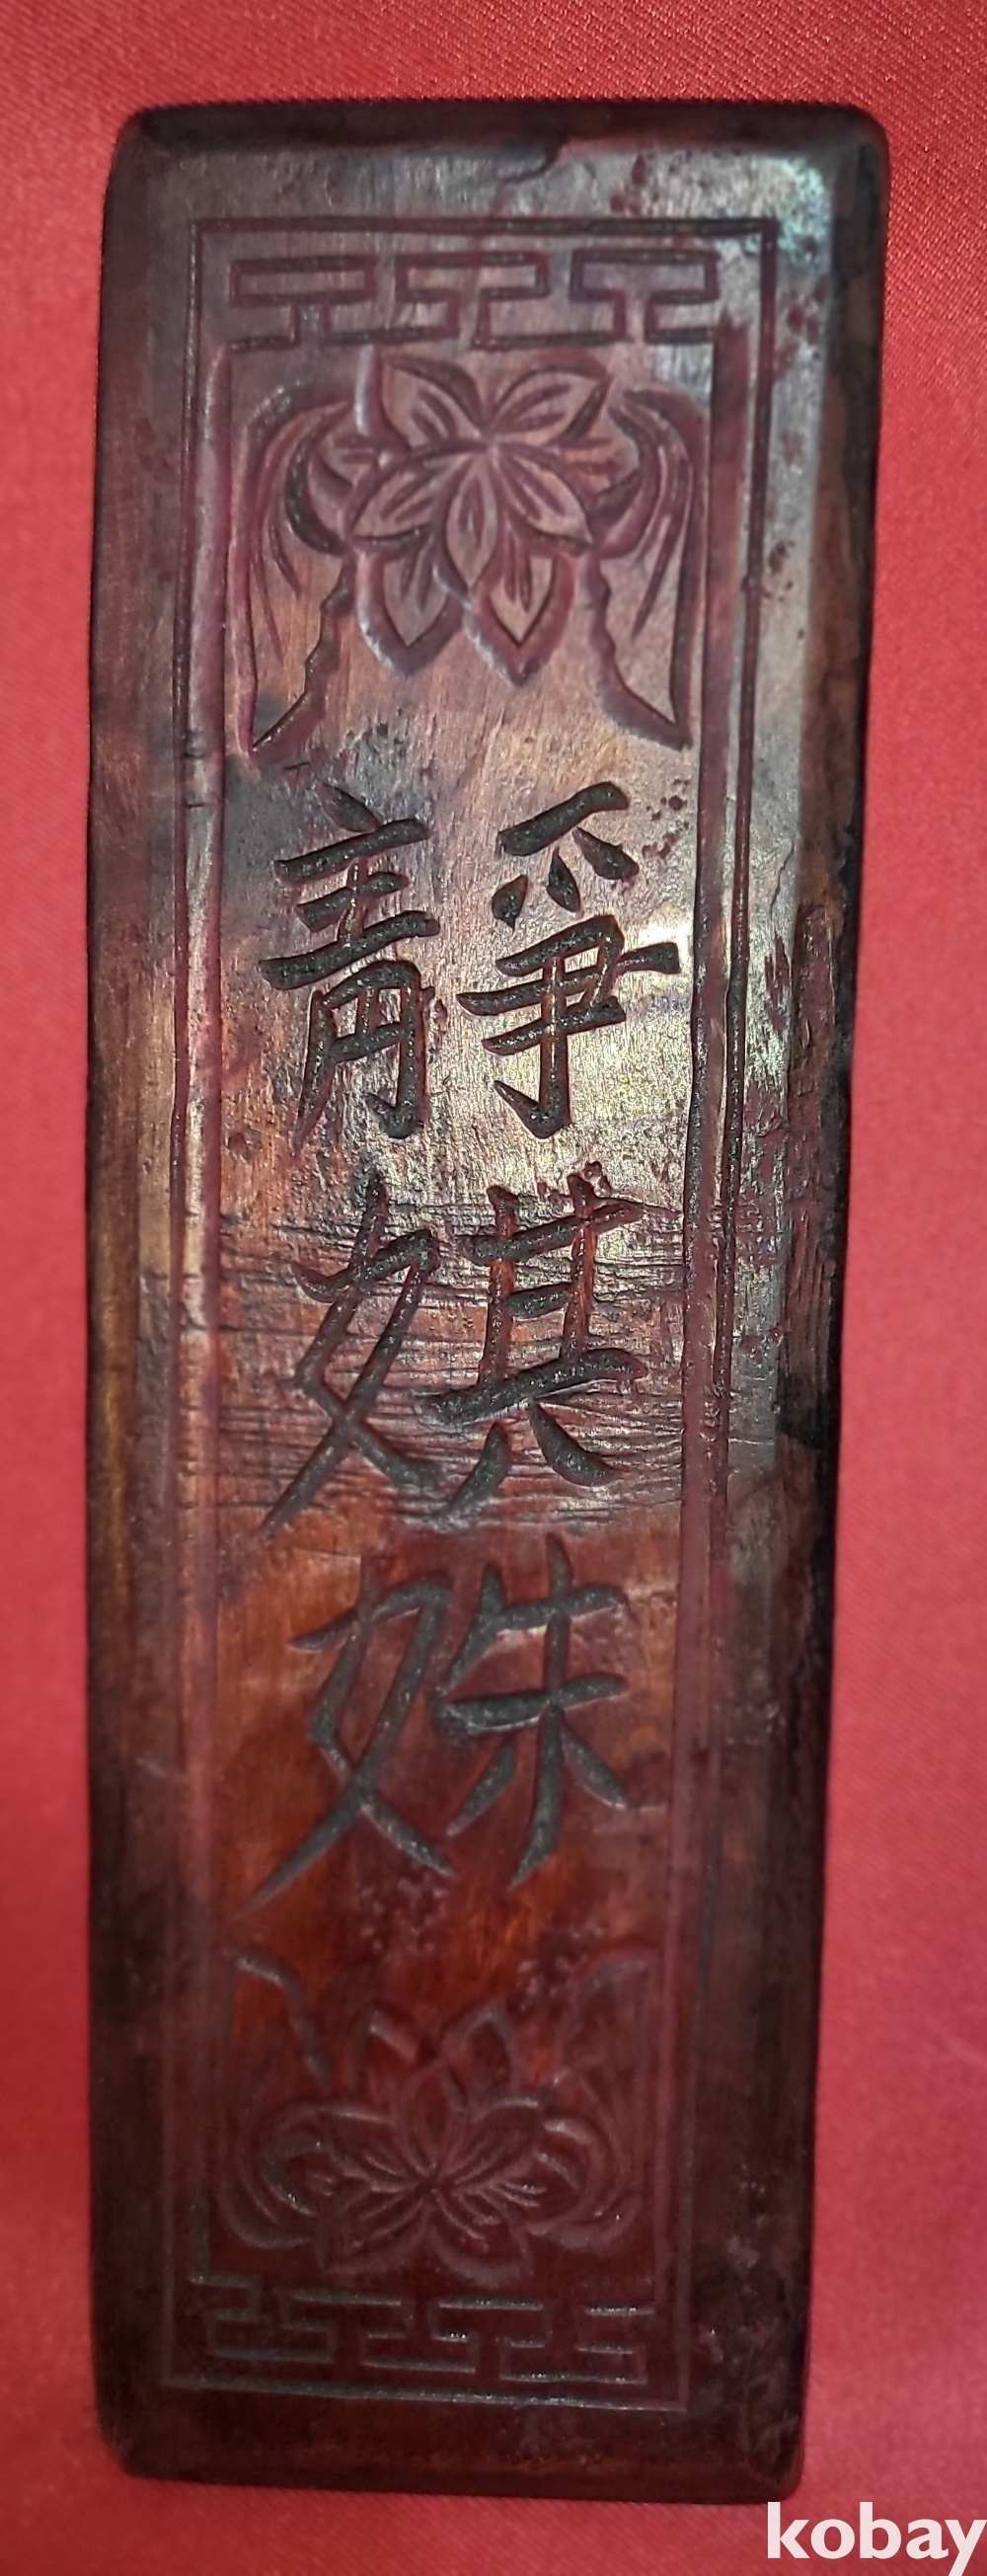 靜
娸
姝
kobay